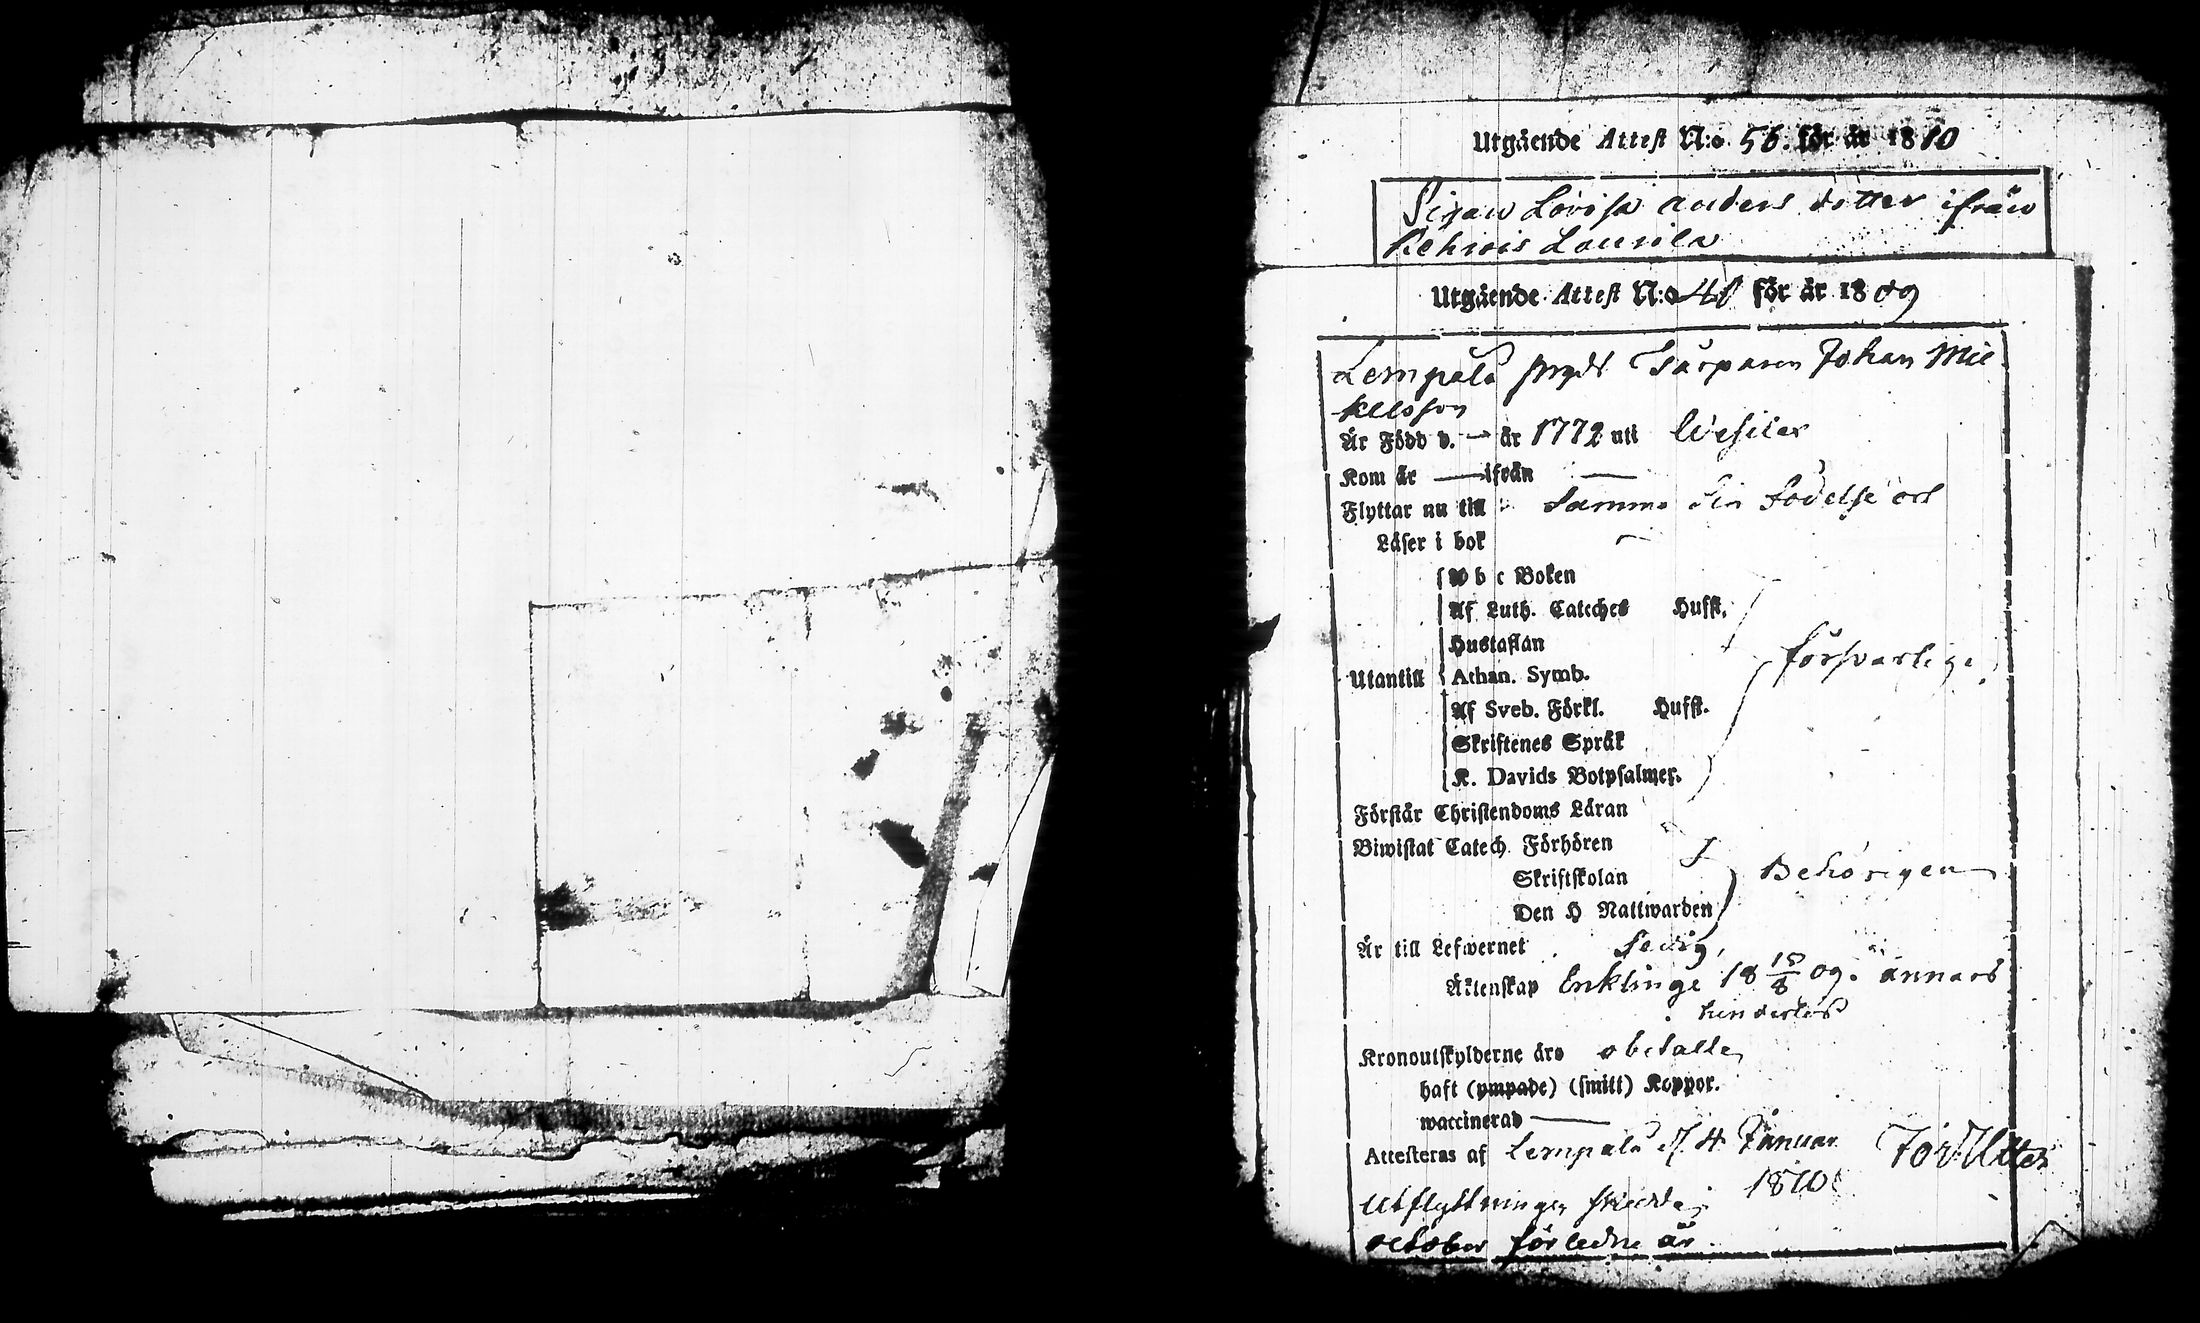 Utgående Attest N:o 56. för år 1810
Pigan Lovisa anders dotter ifrån
Kehrois Laurila
Utgående Attest N:o 48 för år 1809
Lempälä Torparen Johan Mic
kelsson
Är Född d. — år 1772 uti Wesilax
Kom år — ifrån —
Flyttar nu till samma sin födelse ort
Läser i bok —
A b c Boken
Af Luth. Cateches Hufst.
Hustaflan
Utantill Athan. Symb. försvarlige
Af Sveb. Förkl. Hufst.
Skriftenes Språk
K. Davids Botpsalmer.
Förstår Christendoms Läran
Biwistat Catech. Förhören
Skriftskolan Behörigen
Den H Nattwarden
Är till Lefwernet sedig,
Äktenskap Enkling 18 18/8 09. annars
hinderlös
Kronoutskylderne äro obetalte
haft (ympade) (smitt) Koppor.
waccinerad —
Attesteras af Lempälä d. 4 Januar.
1810
Utflyttningen skedde i
october förledne år